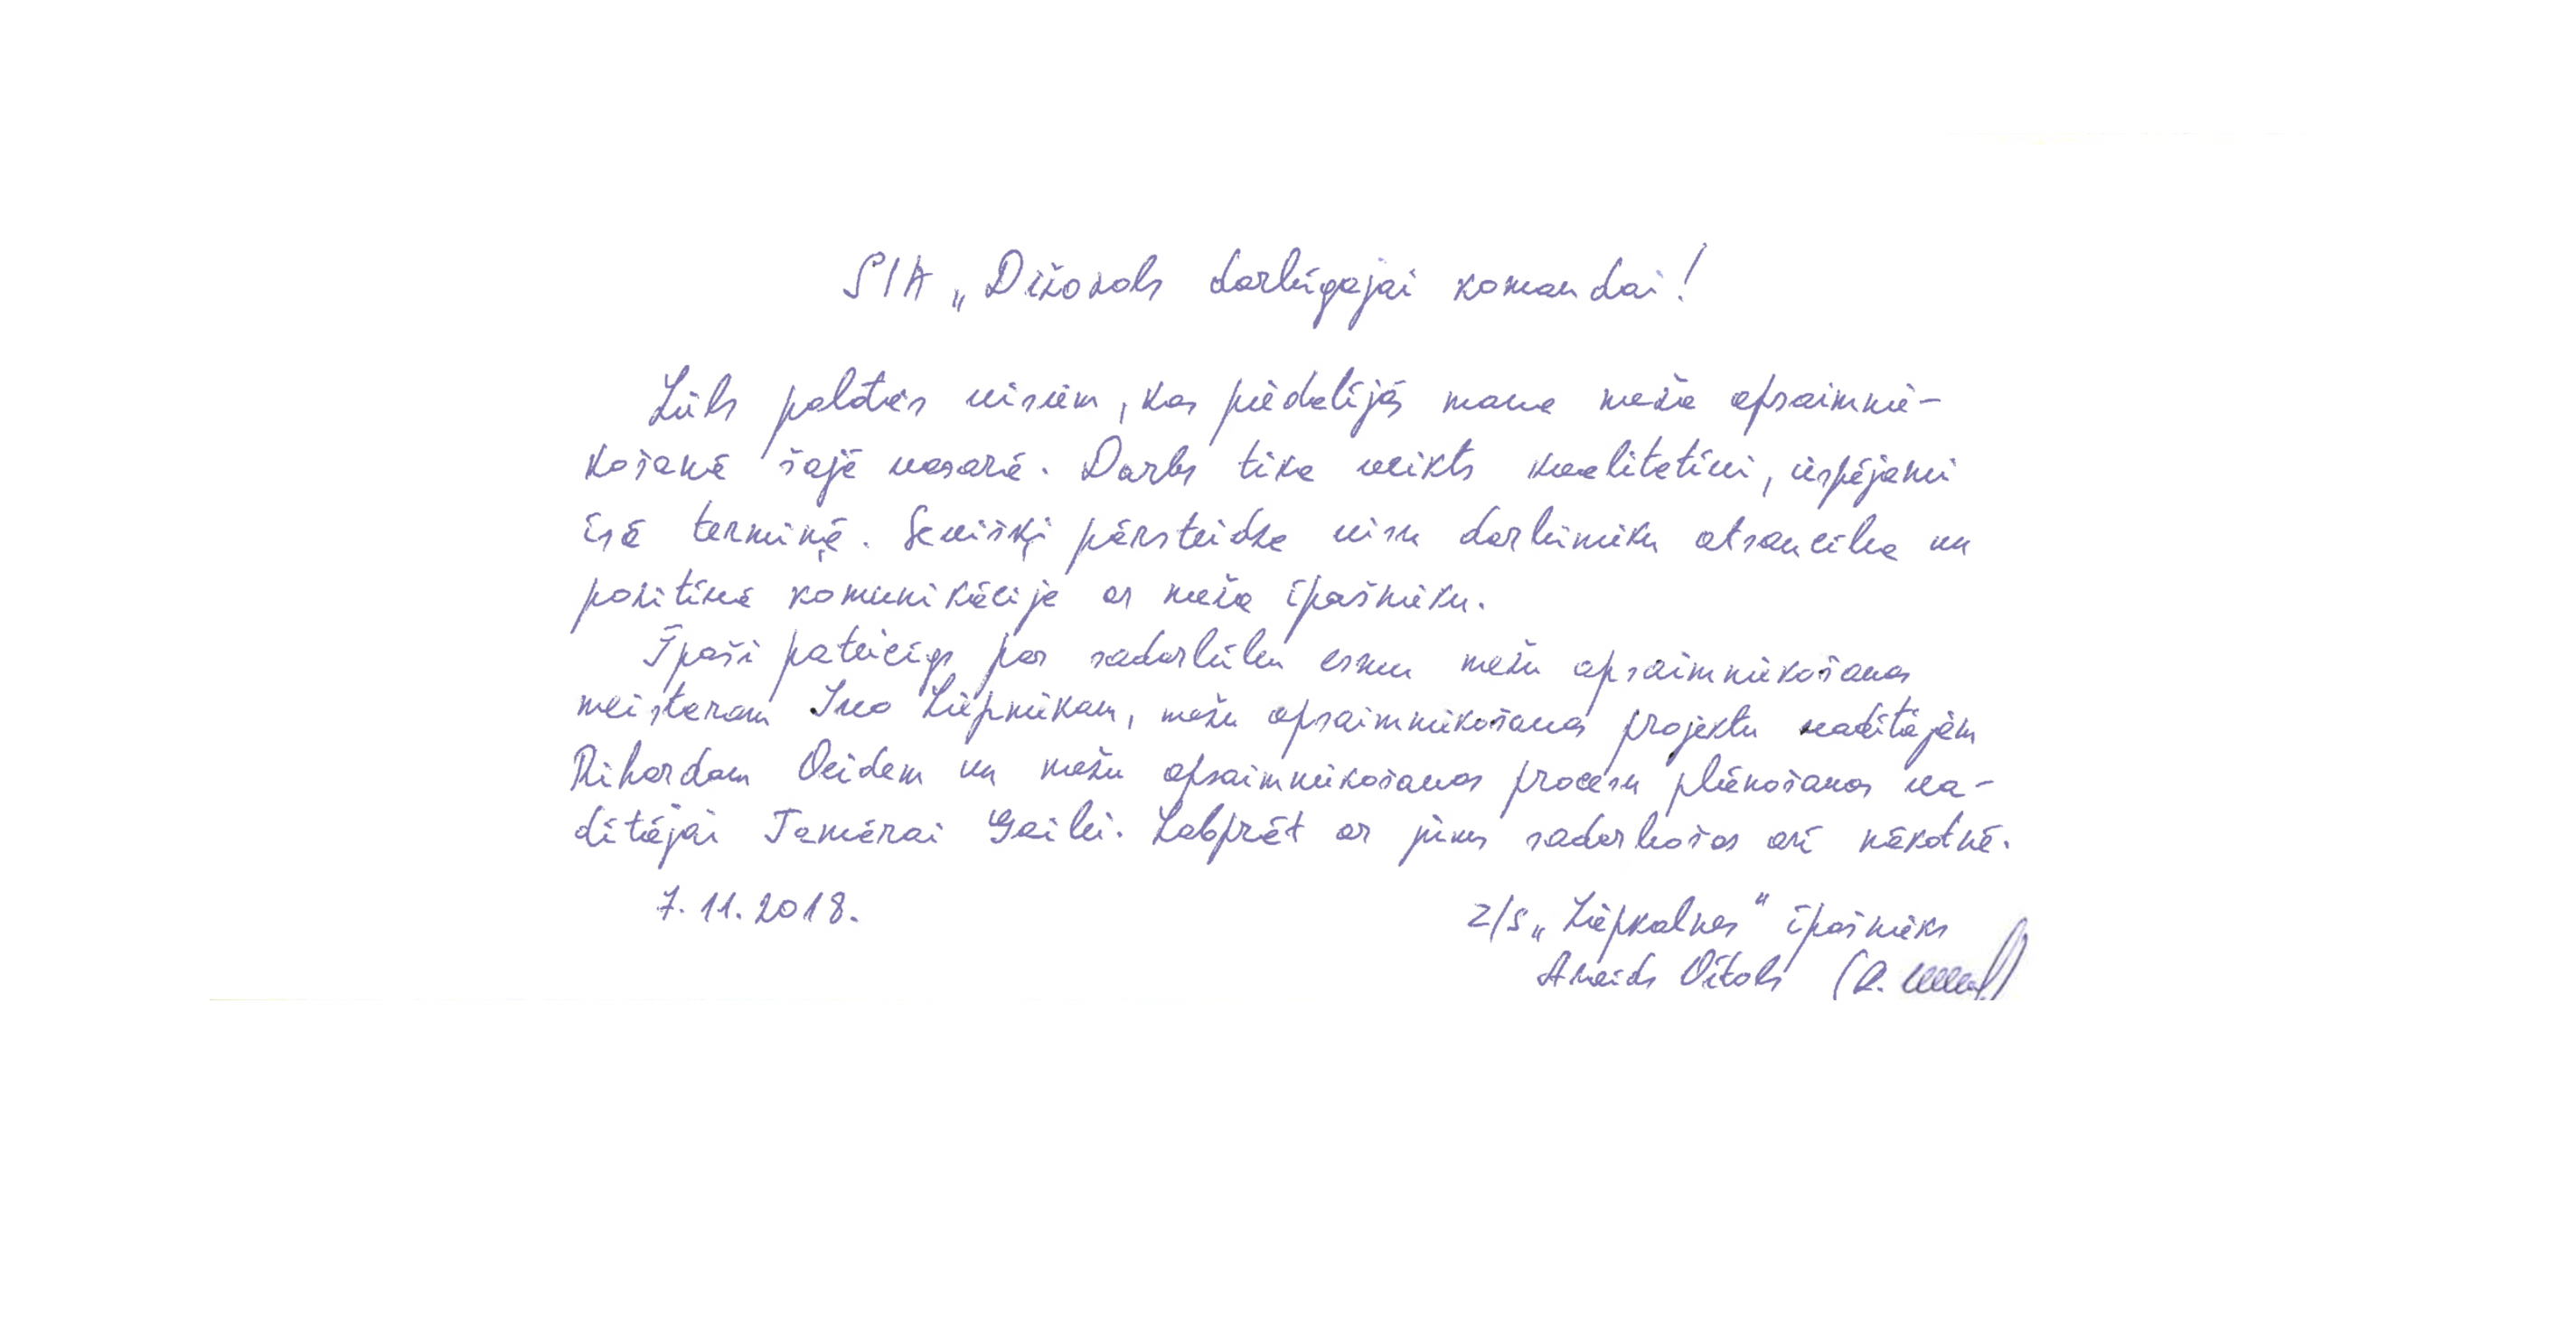 SIA „Dižozols darbīgajai komandai!
Liels paldies visiem, kas piedalījās mana meža apsaimnie-
košanā šajā vasarā. Darbs tika veikts kvalitatīvi, iespējami
īsā termiņā. Sevišķi pārsteidza visu darbinieku atsaucība un
pozitīvā komunikācija ar meža īpašnieku.
Īpaši pateicīgs par sadarbību esmu mežu apsaimniekošanas
meistaram Ivo Liepniekam, mežu apsaimniekošanas projektu vadītājam
Rihardam Veidem un mežu apsaimniekošanas procesu plānošanas va-
dītājai Tamārai Gailei. Labprāt ar jums sadarbošos arī nākotnē.
7.11.2018.
z/s „Liepkalnes" īpašnieks
Alvids Vītols (A.